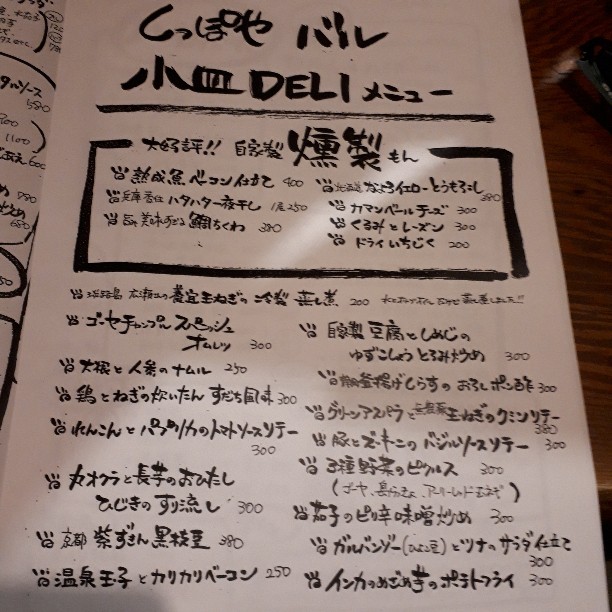 しっぽや バル
小皿DELIメニュー
大好評!! 自家製 燻製もん
熟成魚ベーコン仕立て 400
兵庫香住 ハタハタ一夜干し 1尾250
鯛ちくわ 380
とうもろこし 380
カマンベールチーズ 300
くるみとレーズン 300
ドライいちじく 200
淡路島 玉ねぎの冷製 蒸し煮 200
ゴーヤチャンプル スパニッシュ
オムレツ 300
大根と人参のナムル 250
鶏とねぎの炊いたん すだち風味 300
れんこんとパプリカのトマトソースソテー
300
丸オクラと長芋のおひたし
ひじきのすり流し 300
京都 紫ずきん 黒枝豆 380
温泉玉子とカリカリベーコン 250
自家製豆腐としめじの
ゆずこしょうとろみ炒め 300
釜揚げしらすのおろしポン酢 300
グリーンアスパラと玉ねぎのクミンソテー
380
豚とズッキーニのバジルソースソテー 300
3種野菜のピクルス 300
茄子のピリ辛味噌炒め 300
ガルバンゾー(ひよこ豆)とツナのサラダ仕立て
300
インカのめざめ芋のポテトフライ 300